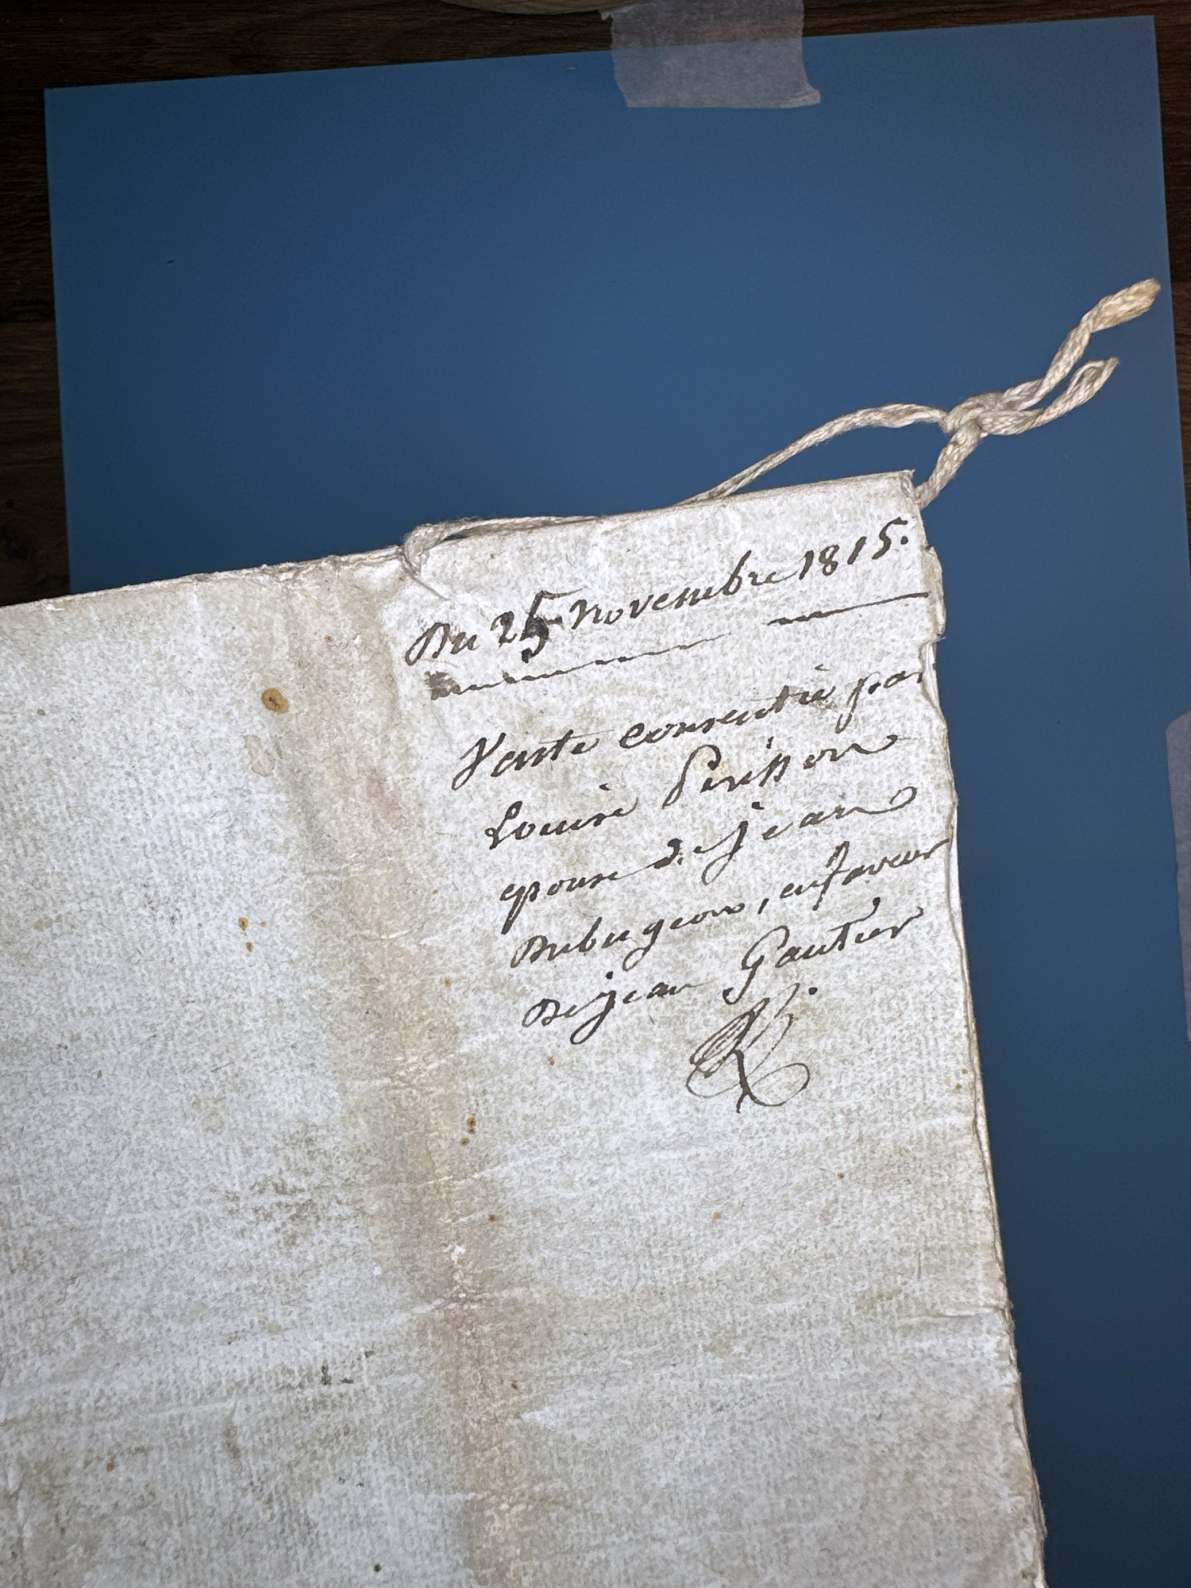 Du 25 Novembre 1815.
Vente consentie par
Louise Périsson
epouse de jean
Dubugeon, enfaveur
Dejean Gautier